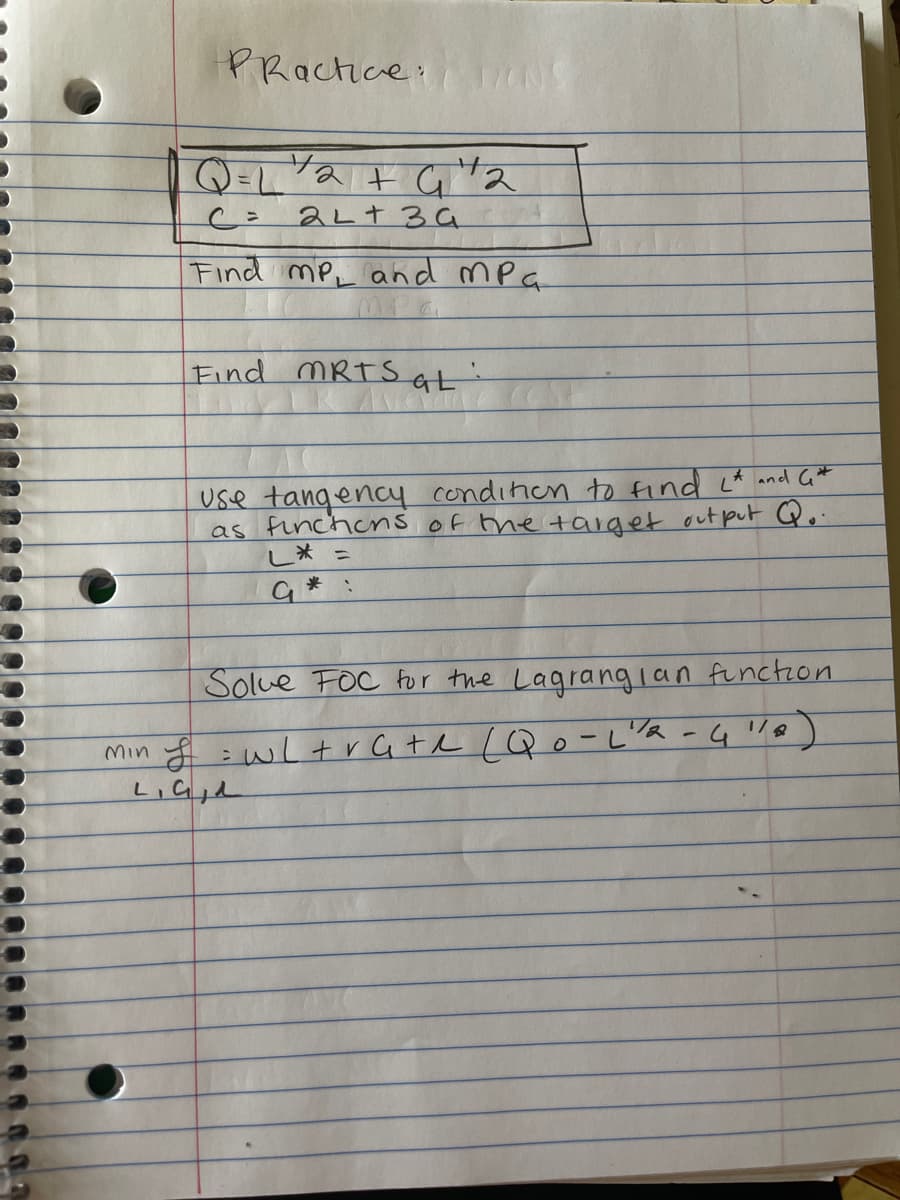 PRactice:
Q=L^1/2 + G^1/2
C = 2L + 3G
Find MP_L and MP_G
Find MRTS GL:
use tangency condition to find L* and G*
as functions of the target output Q₀.
L* =
G* :
Solve FOC for the Lagrangian function
min ℒ = wL + rG + λ (Q₀ - L^1/2 - G^1/2)
L, G, λ